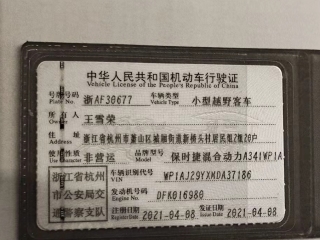 中华人民共和国机动车行驶证
Vehicle License of the People's Republic of China
号牌号码 浙AF30677 车辆类型 小型越野客车
Plate No. Vehicle Type
所有人 王雪荣
Owner
住址 浙江省杭州市萧山区城厢街道新桥头村居民组2组20户
Address
使用性质 非营运 品牌型号 保时捷混合动力A341WP1A
浙江省杭州 车辆识别代号 WP1AJ29YXMDA37186
VIN
市公安局交 发动机号码 DFK016980
Engine No.
通警察支队 注册日期 2021-04-08 发证日期 2021-04-08